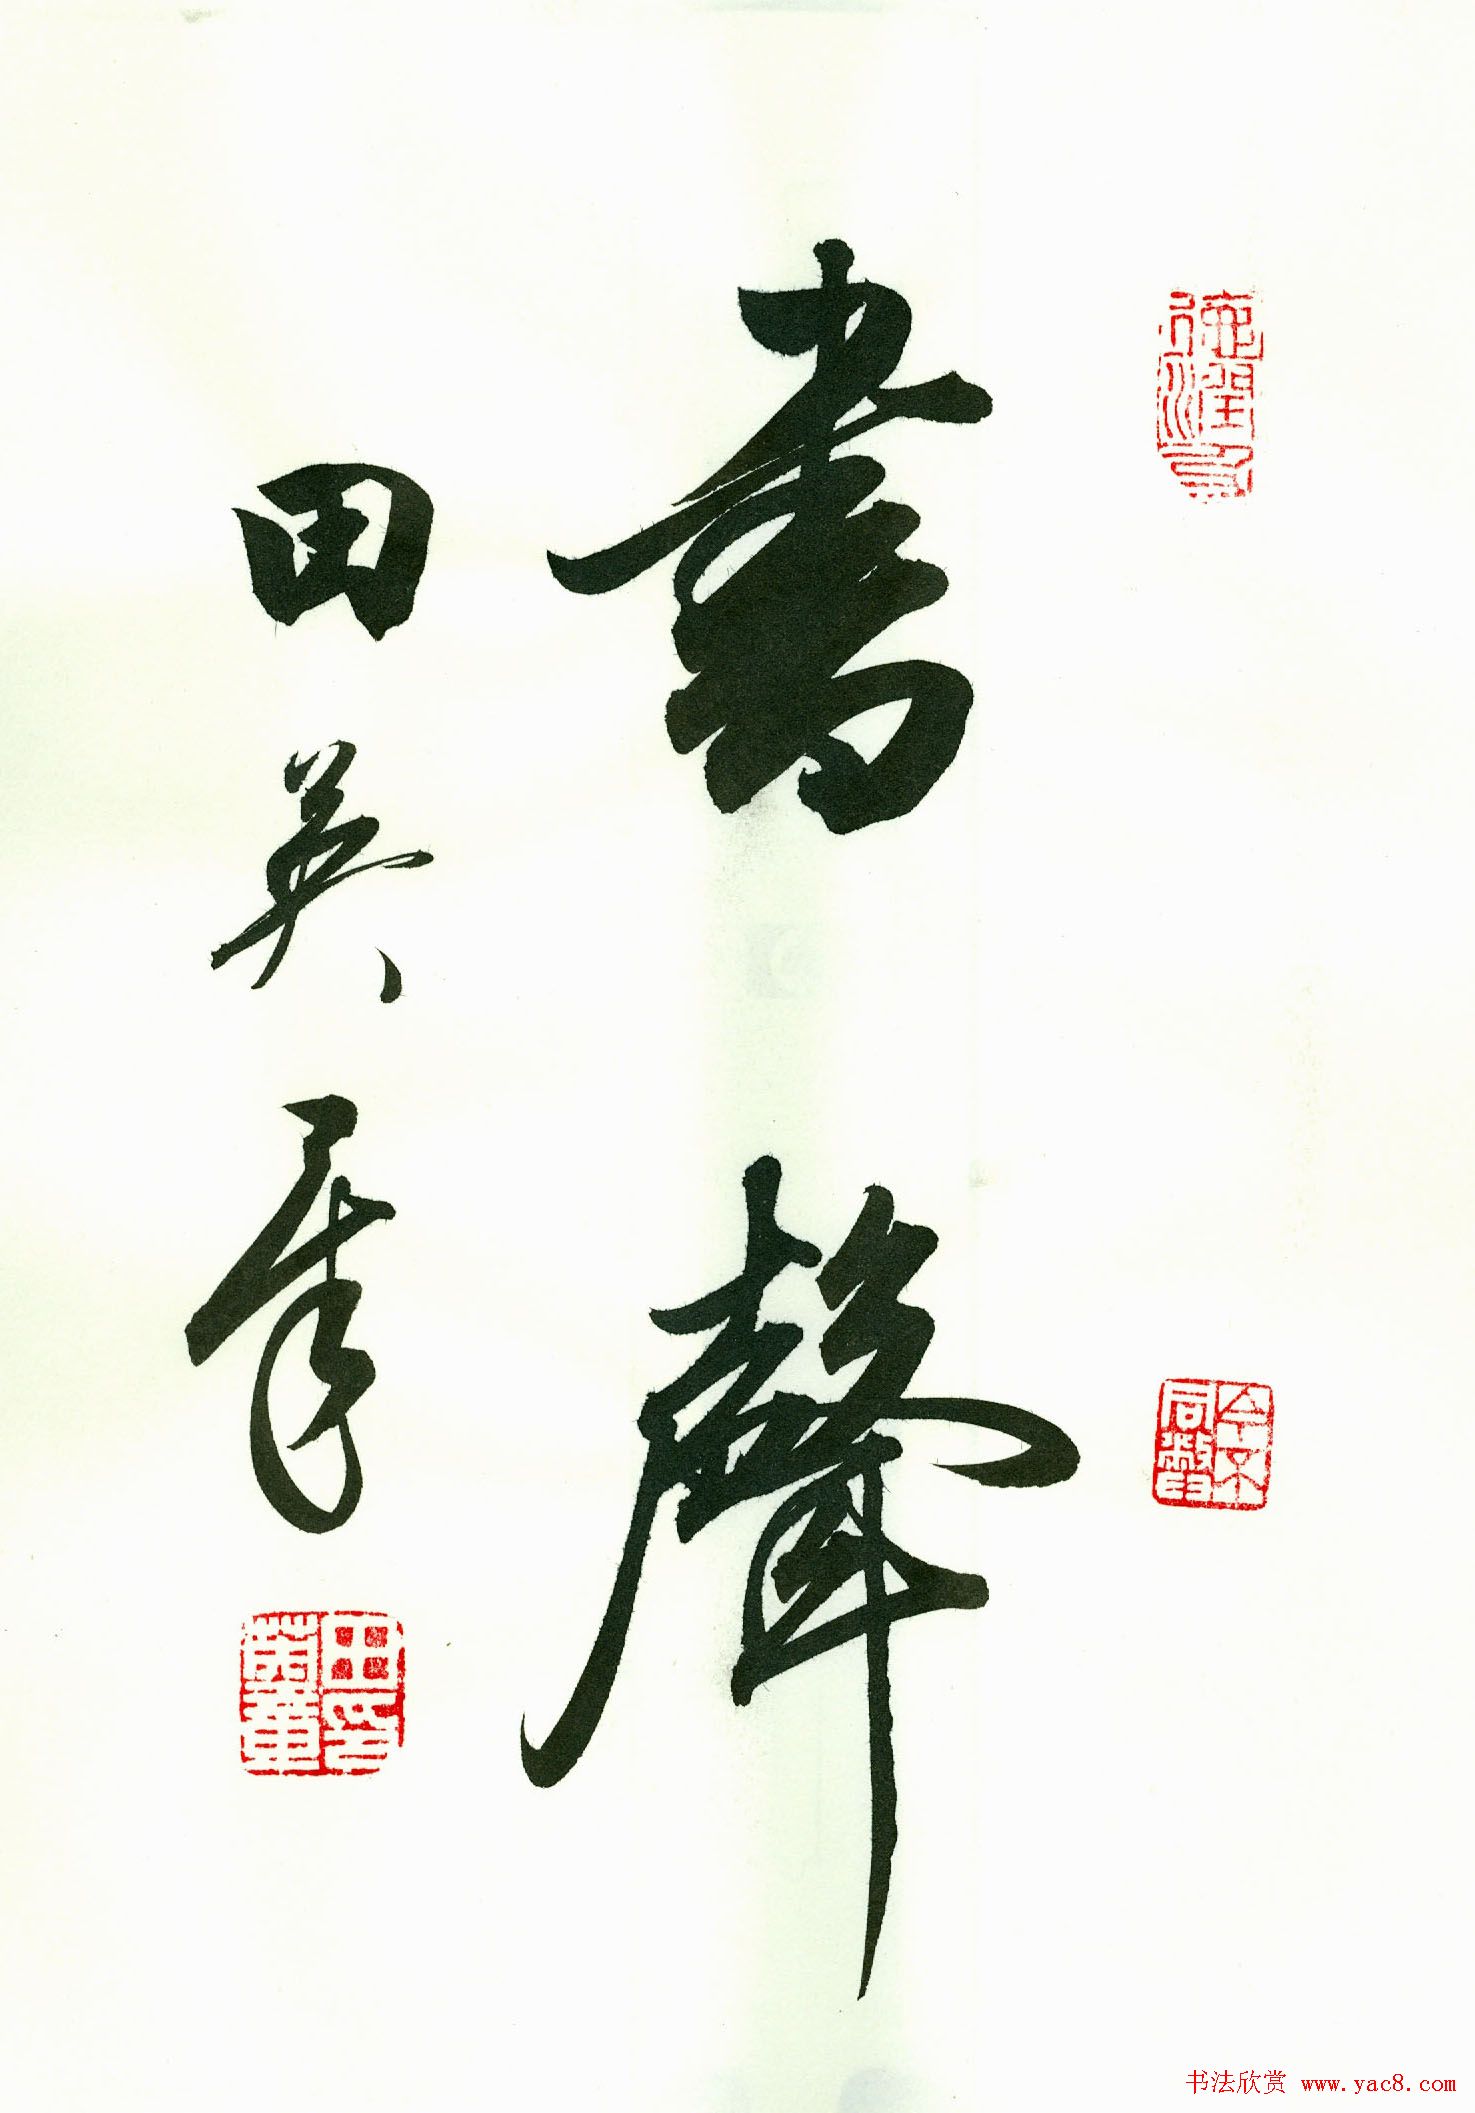 書聲
田英章
田英章印
书法欣赏 www.yac8.com